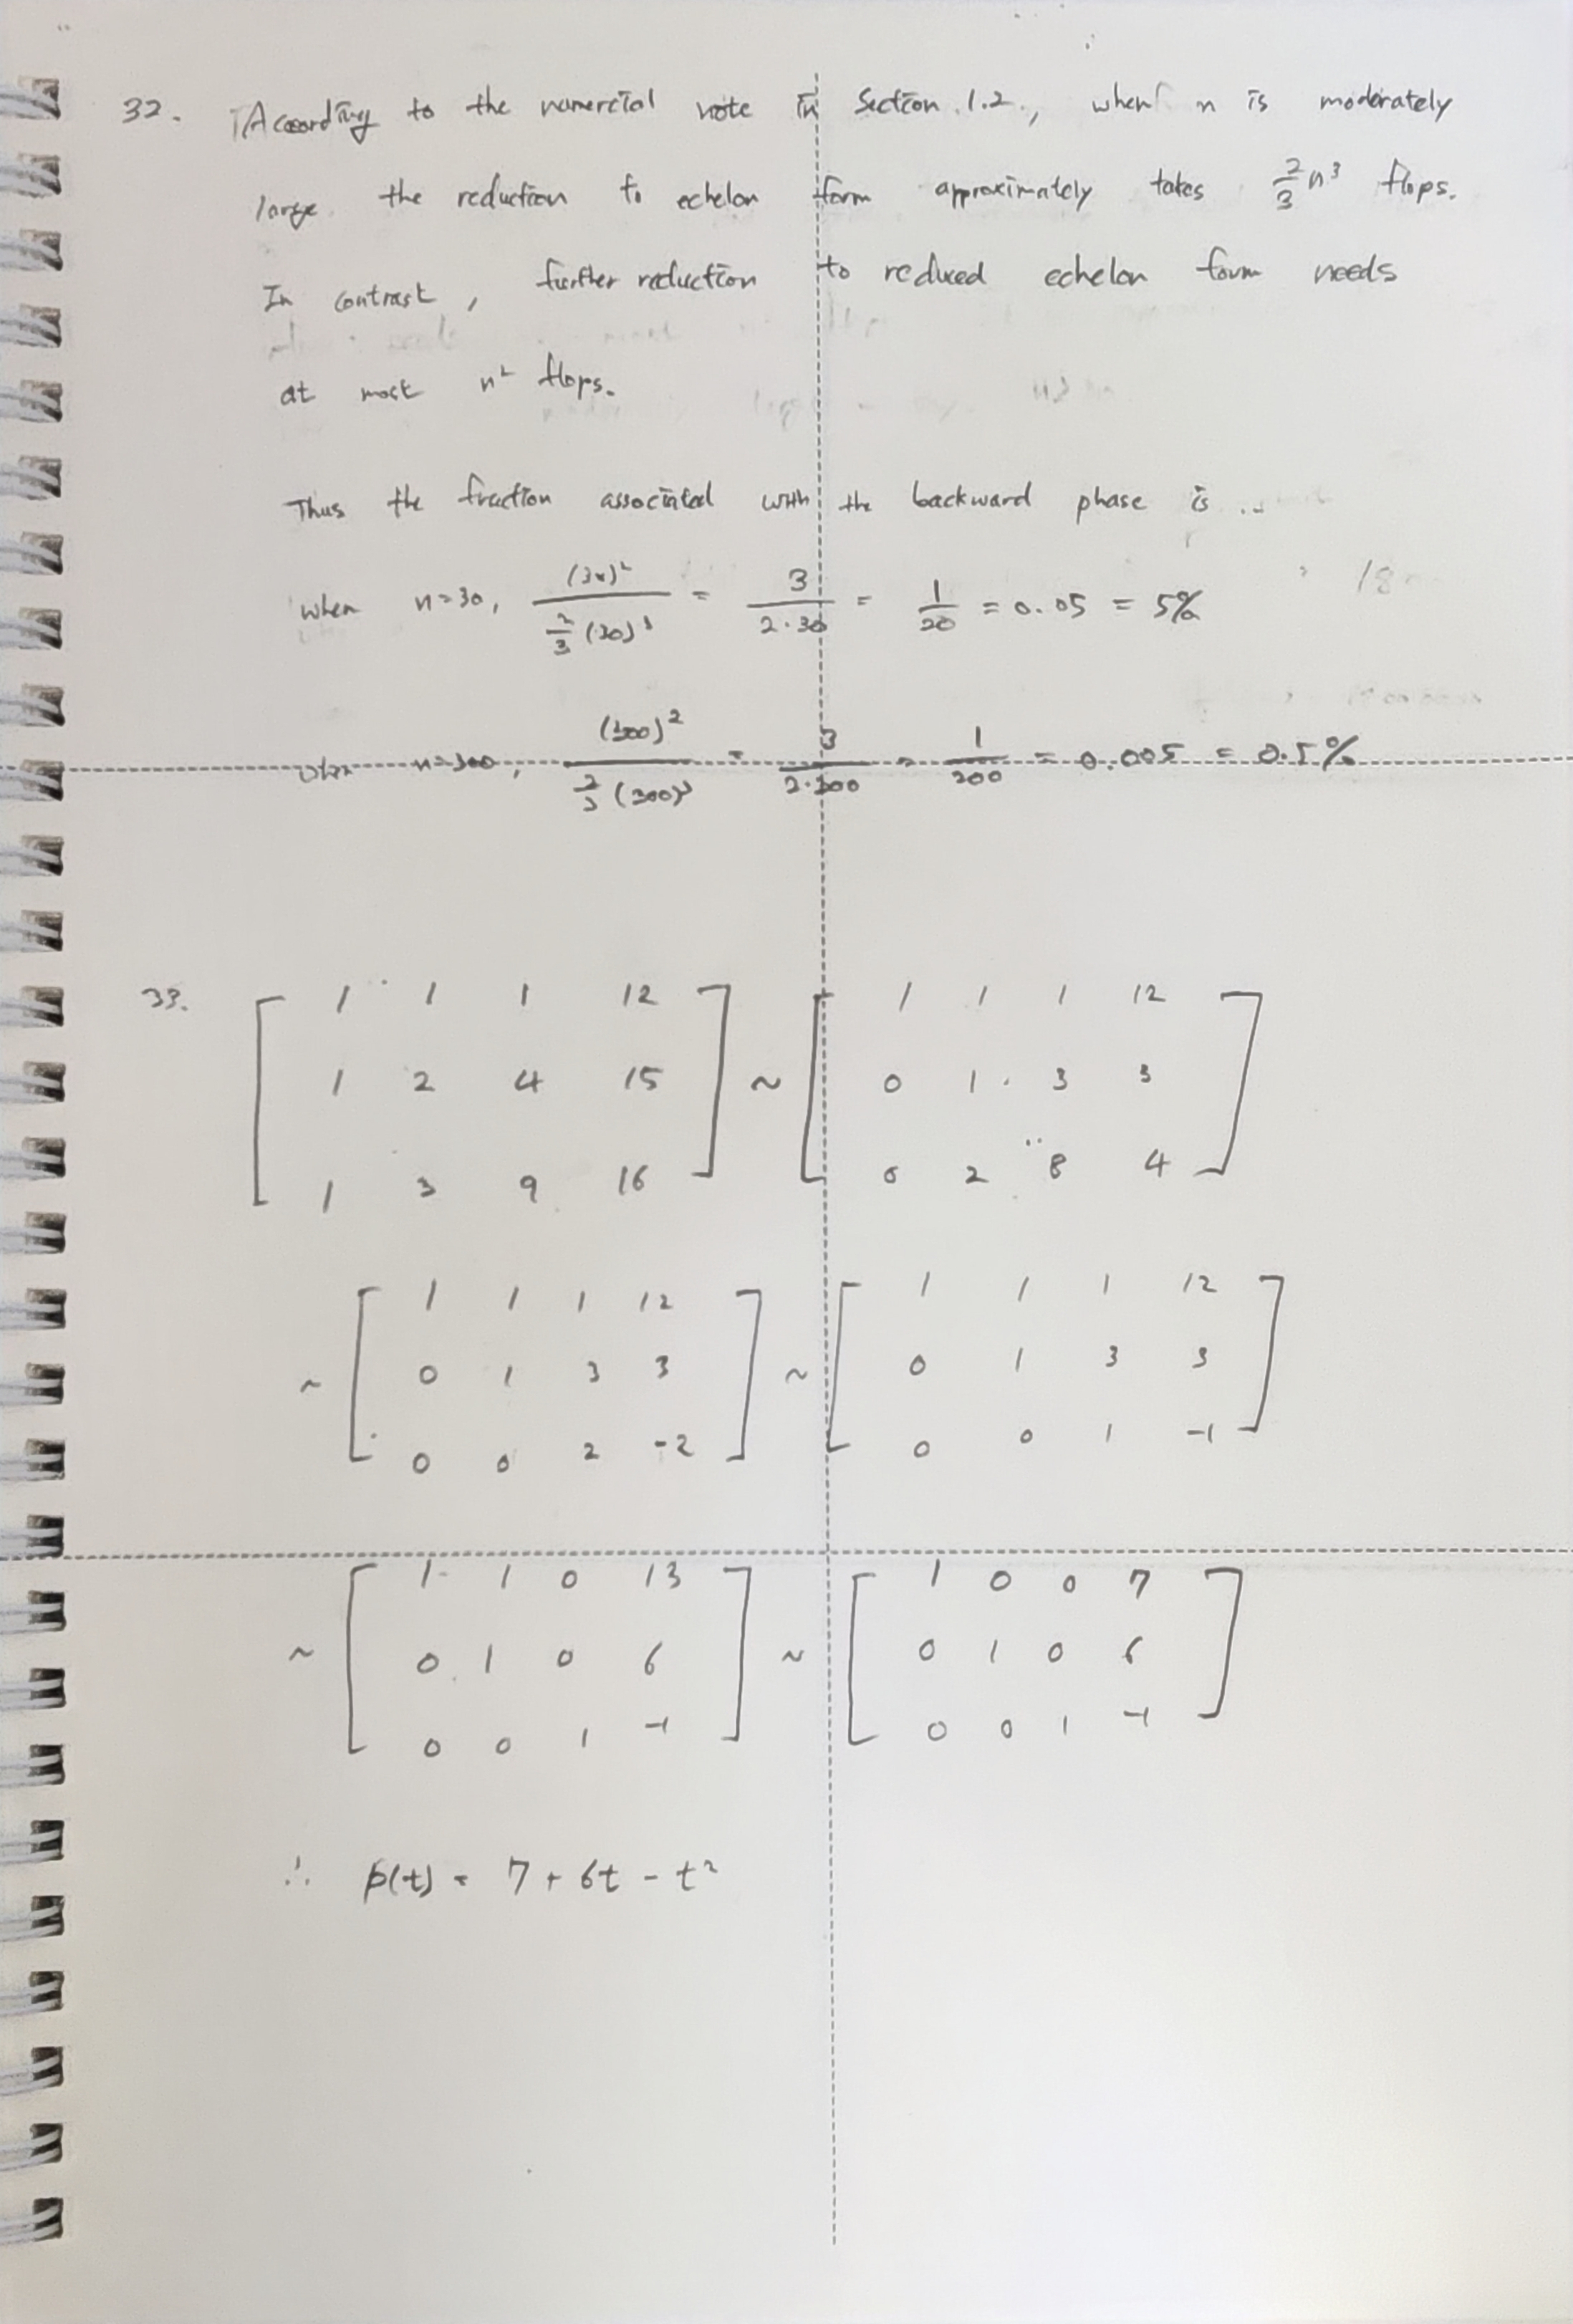 32. According to the numercial note in Section 1.2., when n is moderately
large the reduction to echelon form approximately takes 2/3 n³ flops.
In contrast, further reduction to reduced echelon form needs
at most n² flops.
Thus the fraction associated with the backward phase is ...
when n=30, (30)² / (2/3 (30)³) = 3 / (2·30) = 1/20 = 0.05 = 5%
when n=300, (300)² / (2/3 (300)³) = 3 / (2·300) = 1/200 = 0.005 = 0.5%
33. [ 1 1 1 12 ] ~ [ 1 1 1 12 ]
[ 1 2 4 15 ] [ 0 1 3 3 ]
[ 1 3 9 16 ] [ 0 2 8 4 ]
~ [ 1 1 1 12 ] ~ [ 1 1 1 12 ]
[ 0 1 3 3 ] [ 0 1 3 3 ]
[ 0 0 2 -2 ] [ 0 0 1 -1 ]
~ [ 1 1 0 13 ] ~ [ 1 0 0 7 ]
[ 0 1 0 6 ] [ 0 1 0 6 ]
[ 0 0 1 -1 ] [ 0 0 1 -1 ]
∴ p(t) = 7 + 6t - t²